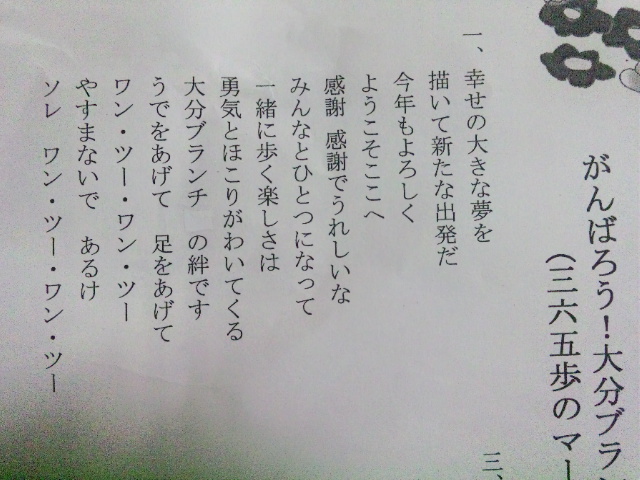 がんばろう!大分ブラン
(三六五歩のマー
一、幸せの大きな夢を
描いて新たな出発だ
今年もよろしく
ようこそここへ
感謝 感謝でうれしいな
みんなとひとつになって
一緒に歩く楽しさは
勇気とほこりがわいてくる
大分ブランチ の絆です
うでをあげて 足をあげて
ワン・ツー・ワン・ツー
やすまないで あるけ
ソレ ワン・ツー・ワン・ツー
三、